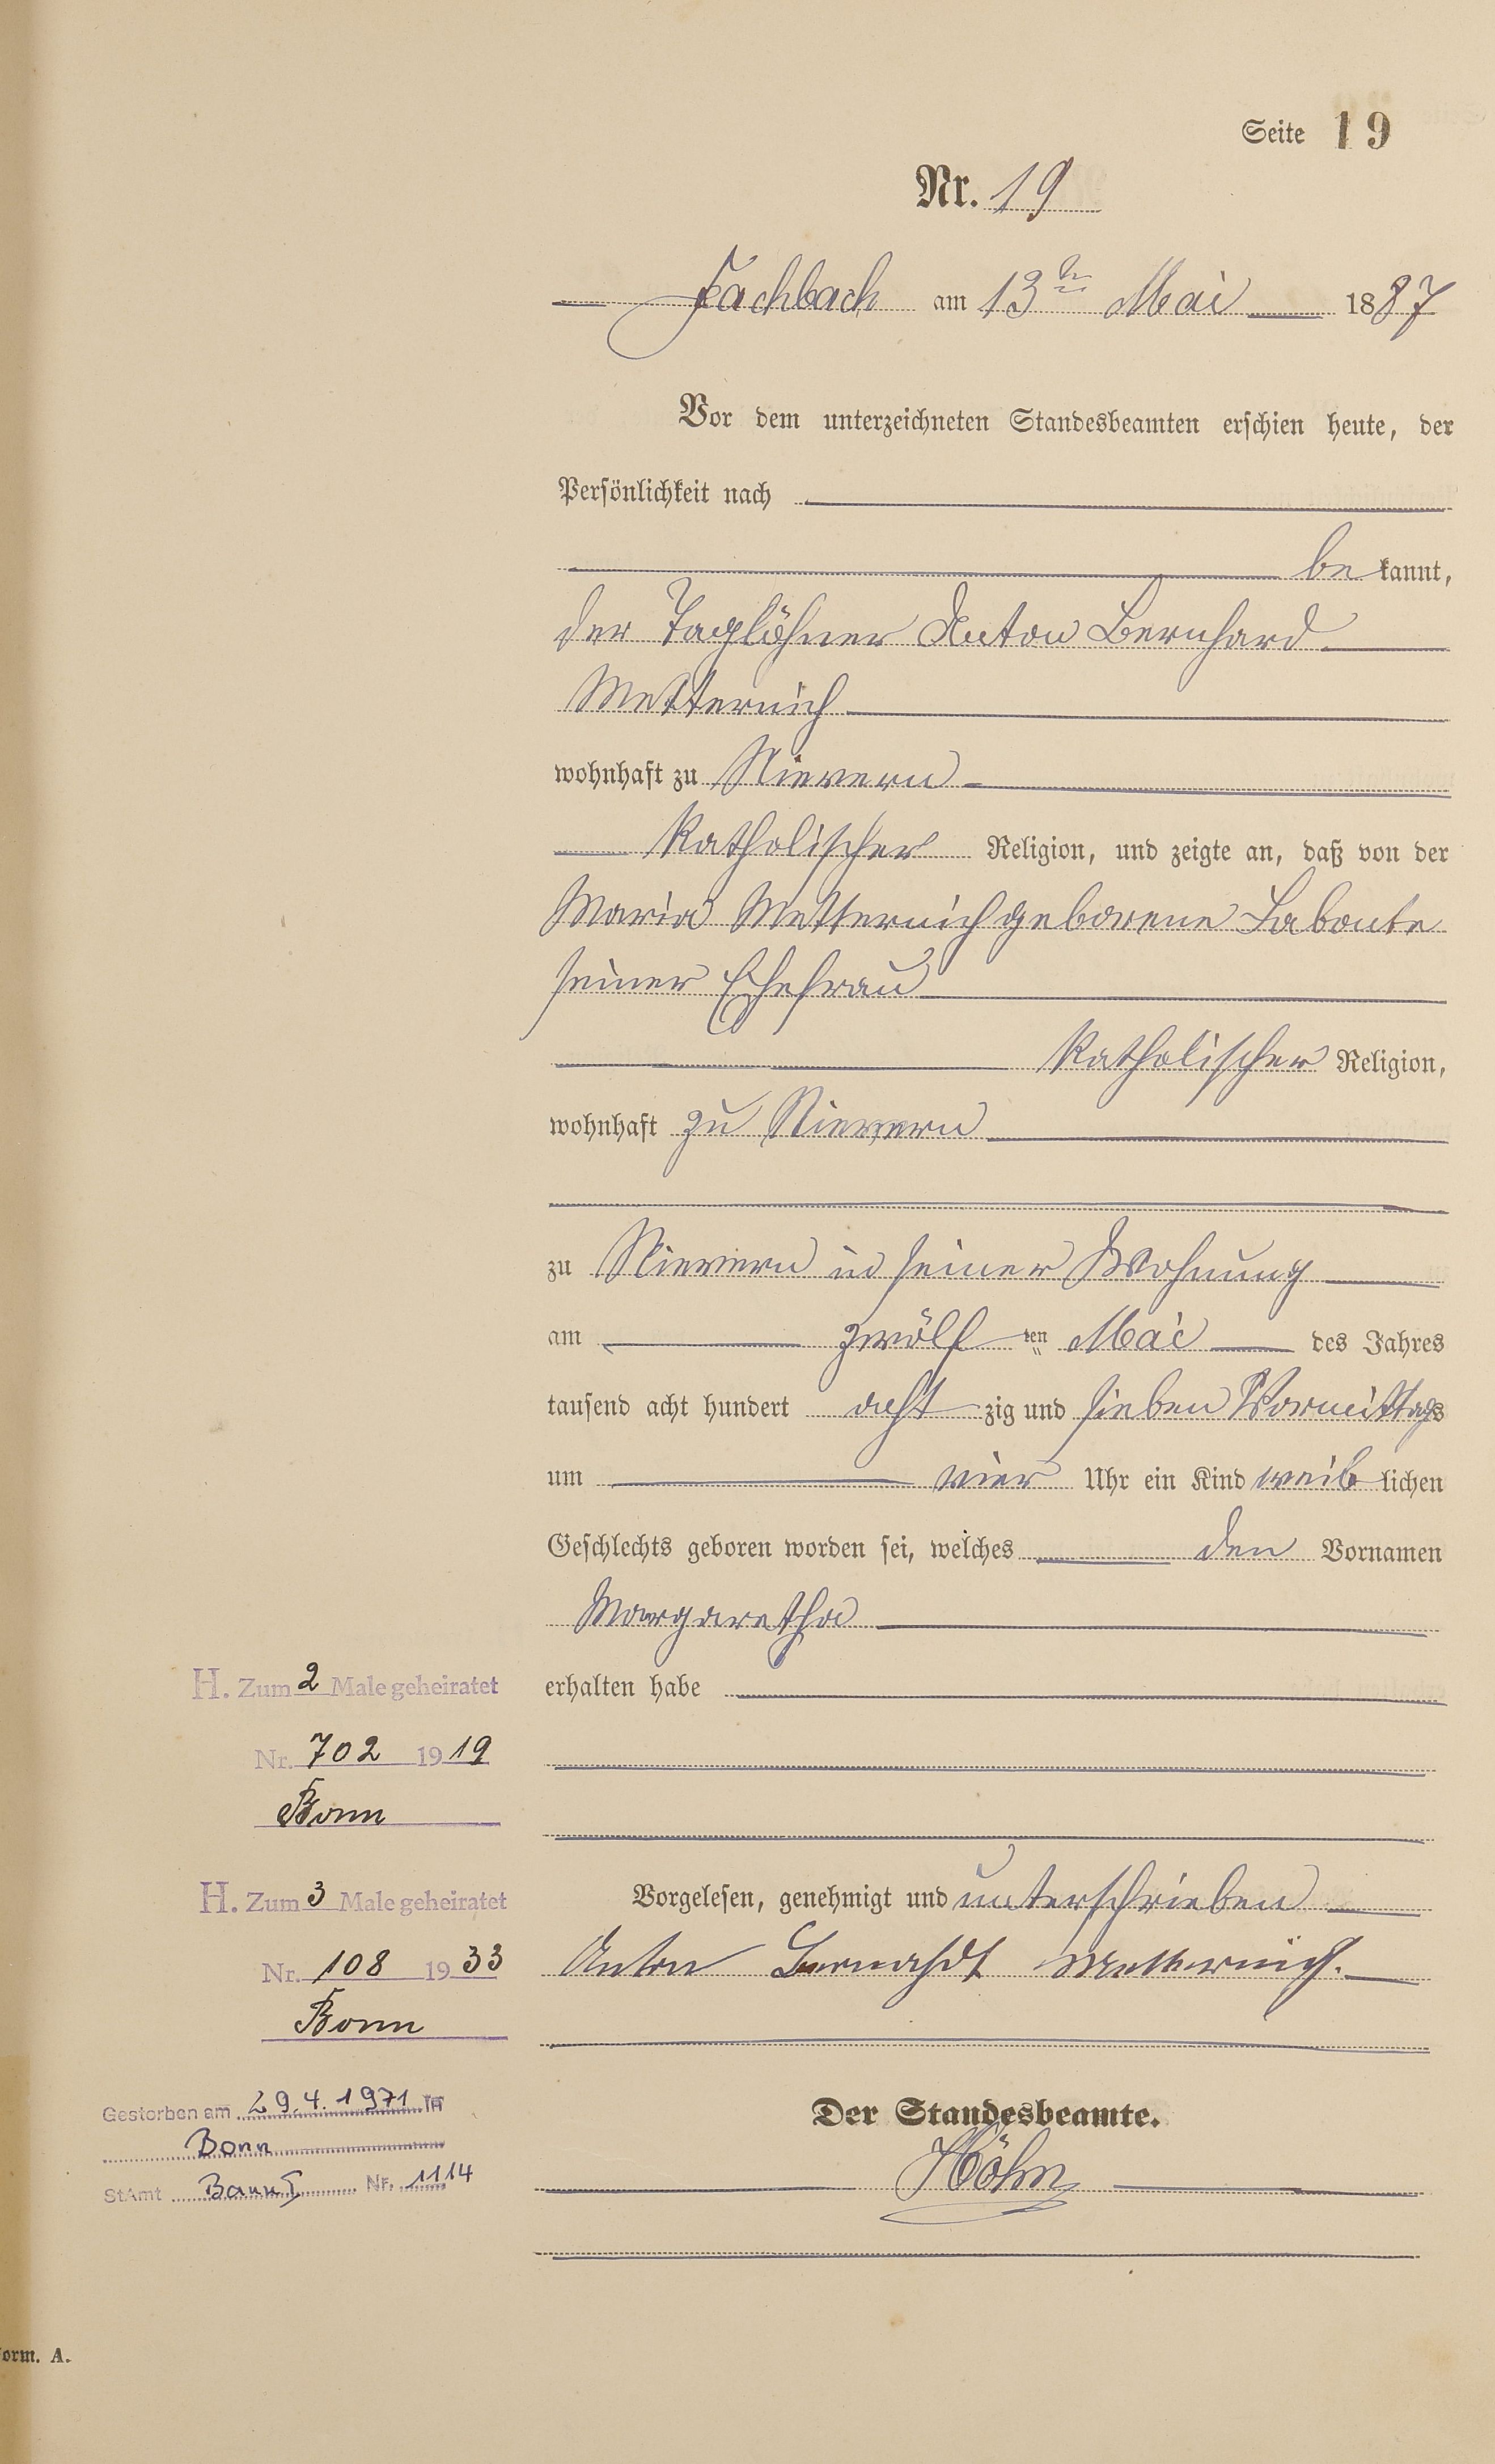 Seite 19
Nr. 19
Fachbach am 13ten Mai 1887
Vor dem unterzeichneten Standesbeamten erschien heute, der
Persönlichkeit nach
be kannt,
der Taglöhner Anton Bernhard
Metternich
wohnhaft zu Nievern
katholischer Religion, und zeigte an, daß von der
Maria Metternich geborene Labonte
seiner Ehefrau
katholischer Religion,
wohnhaft zu Nievern
zu Nievern in seiner Wohnung
am zwölf ten Mai des Jahres
tausend acht hundert acht zig und sieben Vormittags
um vier Uhr ein Kind weib lichen
Geschlechts geboren worden sei, welches den Vornamen
Margaretha
erhalten habe
Vorgelesen, genehmigt und unterschrieben
Anton Bernahdt Metternich.
Der Standesbeamte.
Höhn
H. Zum 2 Male geheiratet
Nr. 702 1919
Bonn
H. Zum 3 Male geheiratet
Nr. 108 1933
Bonn
Gestorben am 29.4.1971 in
Bonn
StAmt Bonn I Nr. 1114
orm. A.